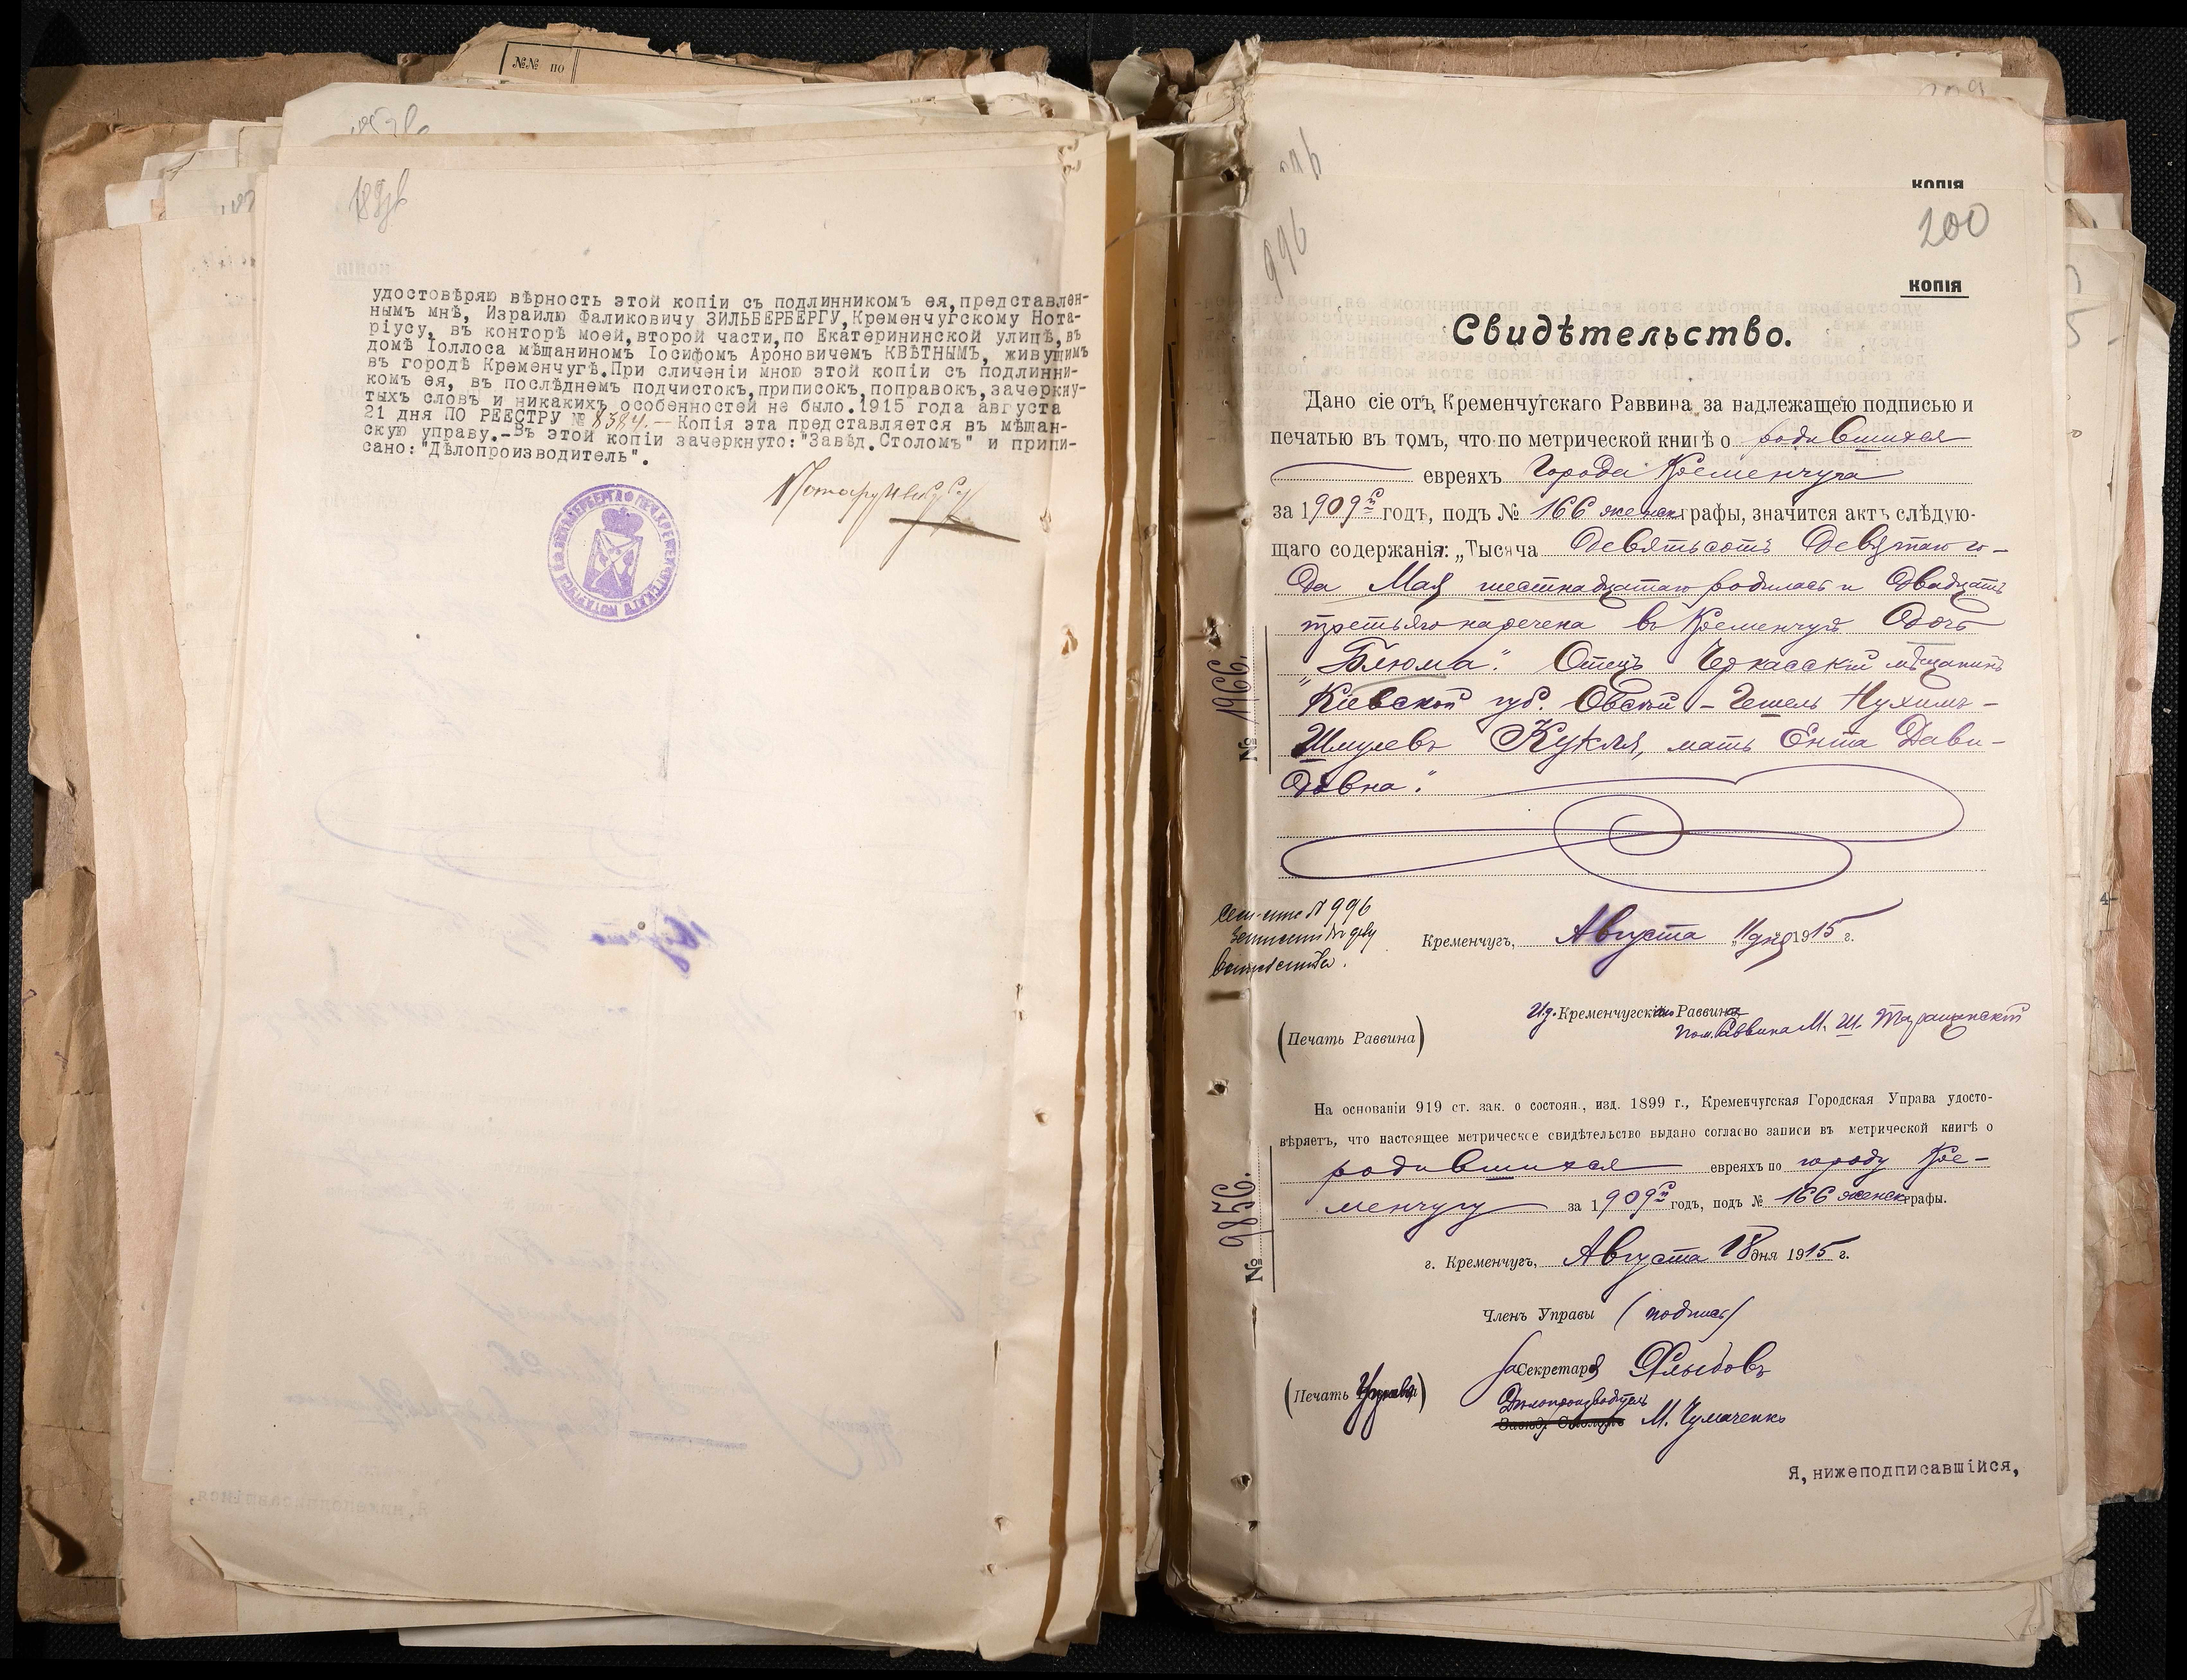 №№ по
189об
удостовѣряю вѣрность этой копіи съ подлинникомъ ея, представлен-
нымъ мнѣ, Израилю Фаликовичу ЗИЛЬБЕРБЕРГУ, Кременчугскому Нота-
ріусу, въ конторѣ моей, второй части, по Екатерининской улицѣ, въ
домѣ Іоллоса мѣщаниномъ Іосифомъ Ароновичемъ КВѢТНЫМЪ, живущимъ
въ городѣ Кременчугѣ. При сличеніи мною этой копіи съ подлинни-
комъ ея, въ послѣднемъ подчистокъ, приписокъ, поправокъ, зачеркну-
тыхъ словъ и никакихъ особенностей не было. 1915 года августа
21 дня ПО РЕЕСТРУ № 8384.— Копія эта представляется въ мѣщан-
скую управу.-Въ этой копіи зачеркнуто: "Завѣд. Столомъ" и припи-
сано: "Дѣлопроизводитель".
КОПІЯ
200
996
КОПІЯ
Свидѣтельство.
Дано сіе отъ Кременчугскаго Раввина за надлежащею подписью и
печатью въ томъ, что по метрической книгѣ о родившихся
евреяхъ города Кременчуга
за 1909й годъ, подъ № 166 женск графы, значится актъ слѣдую-
щаго содержанія: „Тысяча девятьсотъ девятаго го-
да Мая шестнадцатаго родилась и двадцать
третьяго наречена въ Кременчугѣ дочь
"Блюма". Отецъ Черкасскій мѣщанинъ
Кіевской губ. Овсѣй-Гешель Нухимъ-
Шмулевъ Кукля, мать Ента Дави-
довна."
№ 1966.
№ 996
Кременчугъ, Августа „11 дня 1915 г.
И.д. Кременчугскаго Раввина
Пом. Раввина М. Ш. Таращанскій
(Печать Раввина)
На основаніи 919 ст. зак. о состоян., изд. 1899 г., Кременчугская Городская Управа удосто-
вѣряетъ, что настоящее метрическое свидѣтельство выдано согласно записи въ метрической книгѣ о
родившихся евреяхъ по городу Кре-
менчугу за 1909й годъ, подъ № 166 женск графы.
№ 9856.
г. Кременчугъ, Августа 18 дня 1915 г.
Членъ Управы (подпись)
За Секретаря Хлыбовъ
(Печать Управы)
Дѣлопроизводитель
Завѣд. Столомъ М. Чумаченко
Я, нижеподписавшійся,